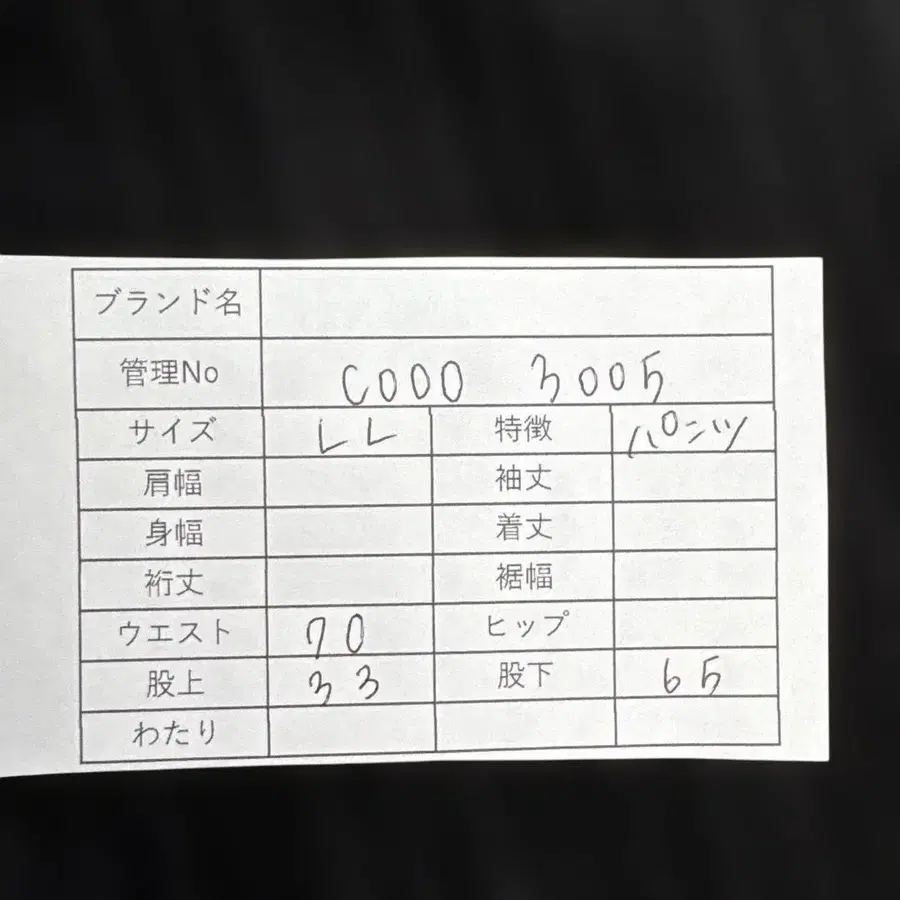 ブランド名
管理No C000 3005
サイズ LL 特徴 パンツ
肩幅 袖丈
身幅 着丈
裄丈 裾幅
ウエスト 70 ヒップ
股上 33 股下 65
わたり